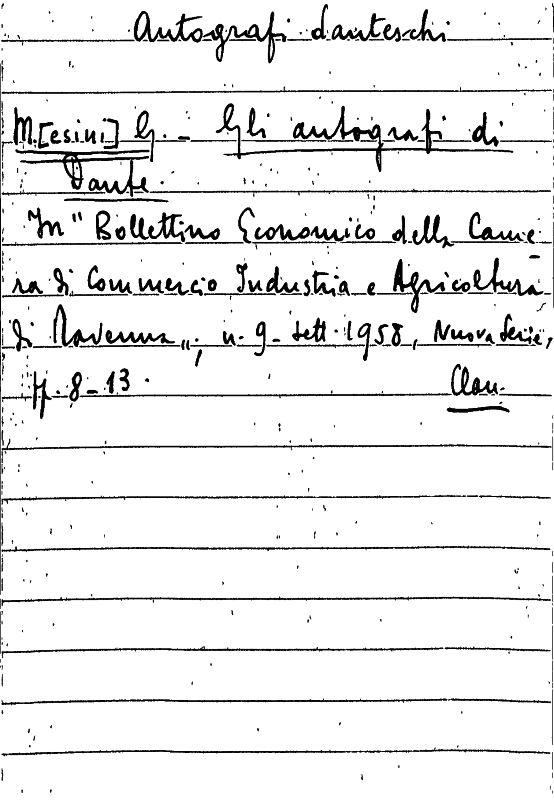 Autografi danteschi
M.[esini] G. - Gli autografi di
Dante.
In "Bollettino Economico della Came-
ra di Commercio Industria e Agricoltura
di Ravenna", n. 9 - Sett. 1958, Nuova Serie,
pp. 8-13. Clan.